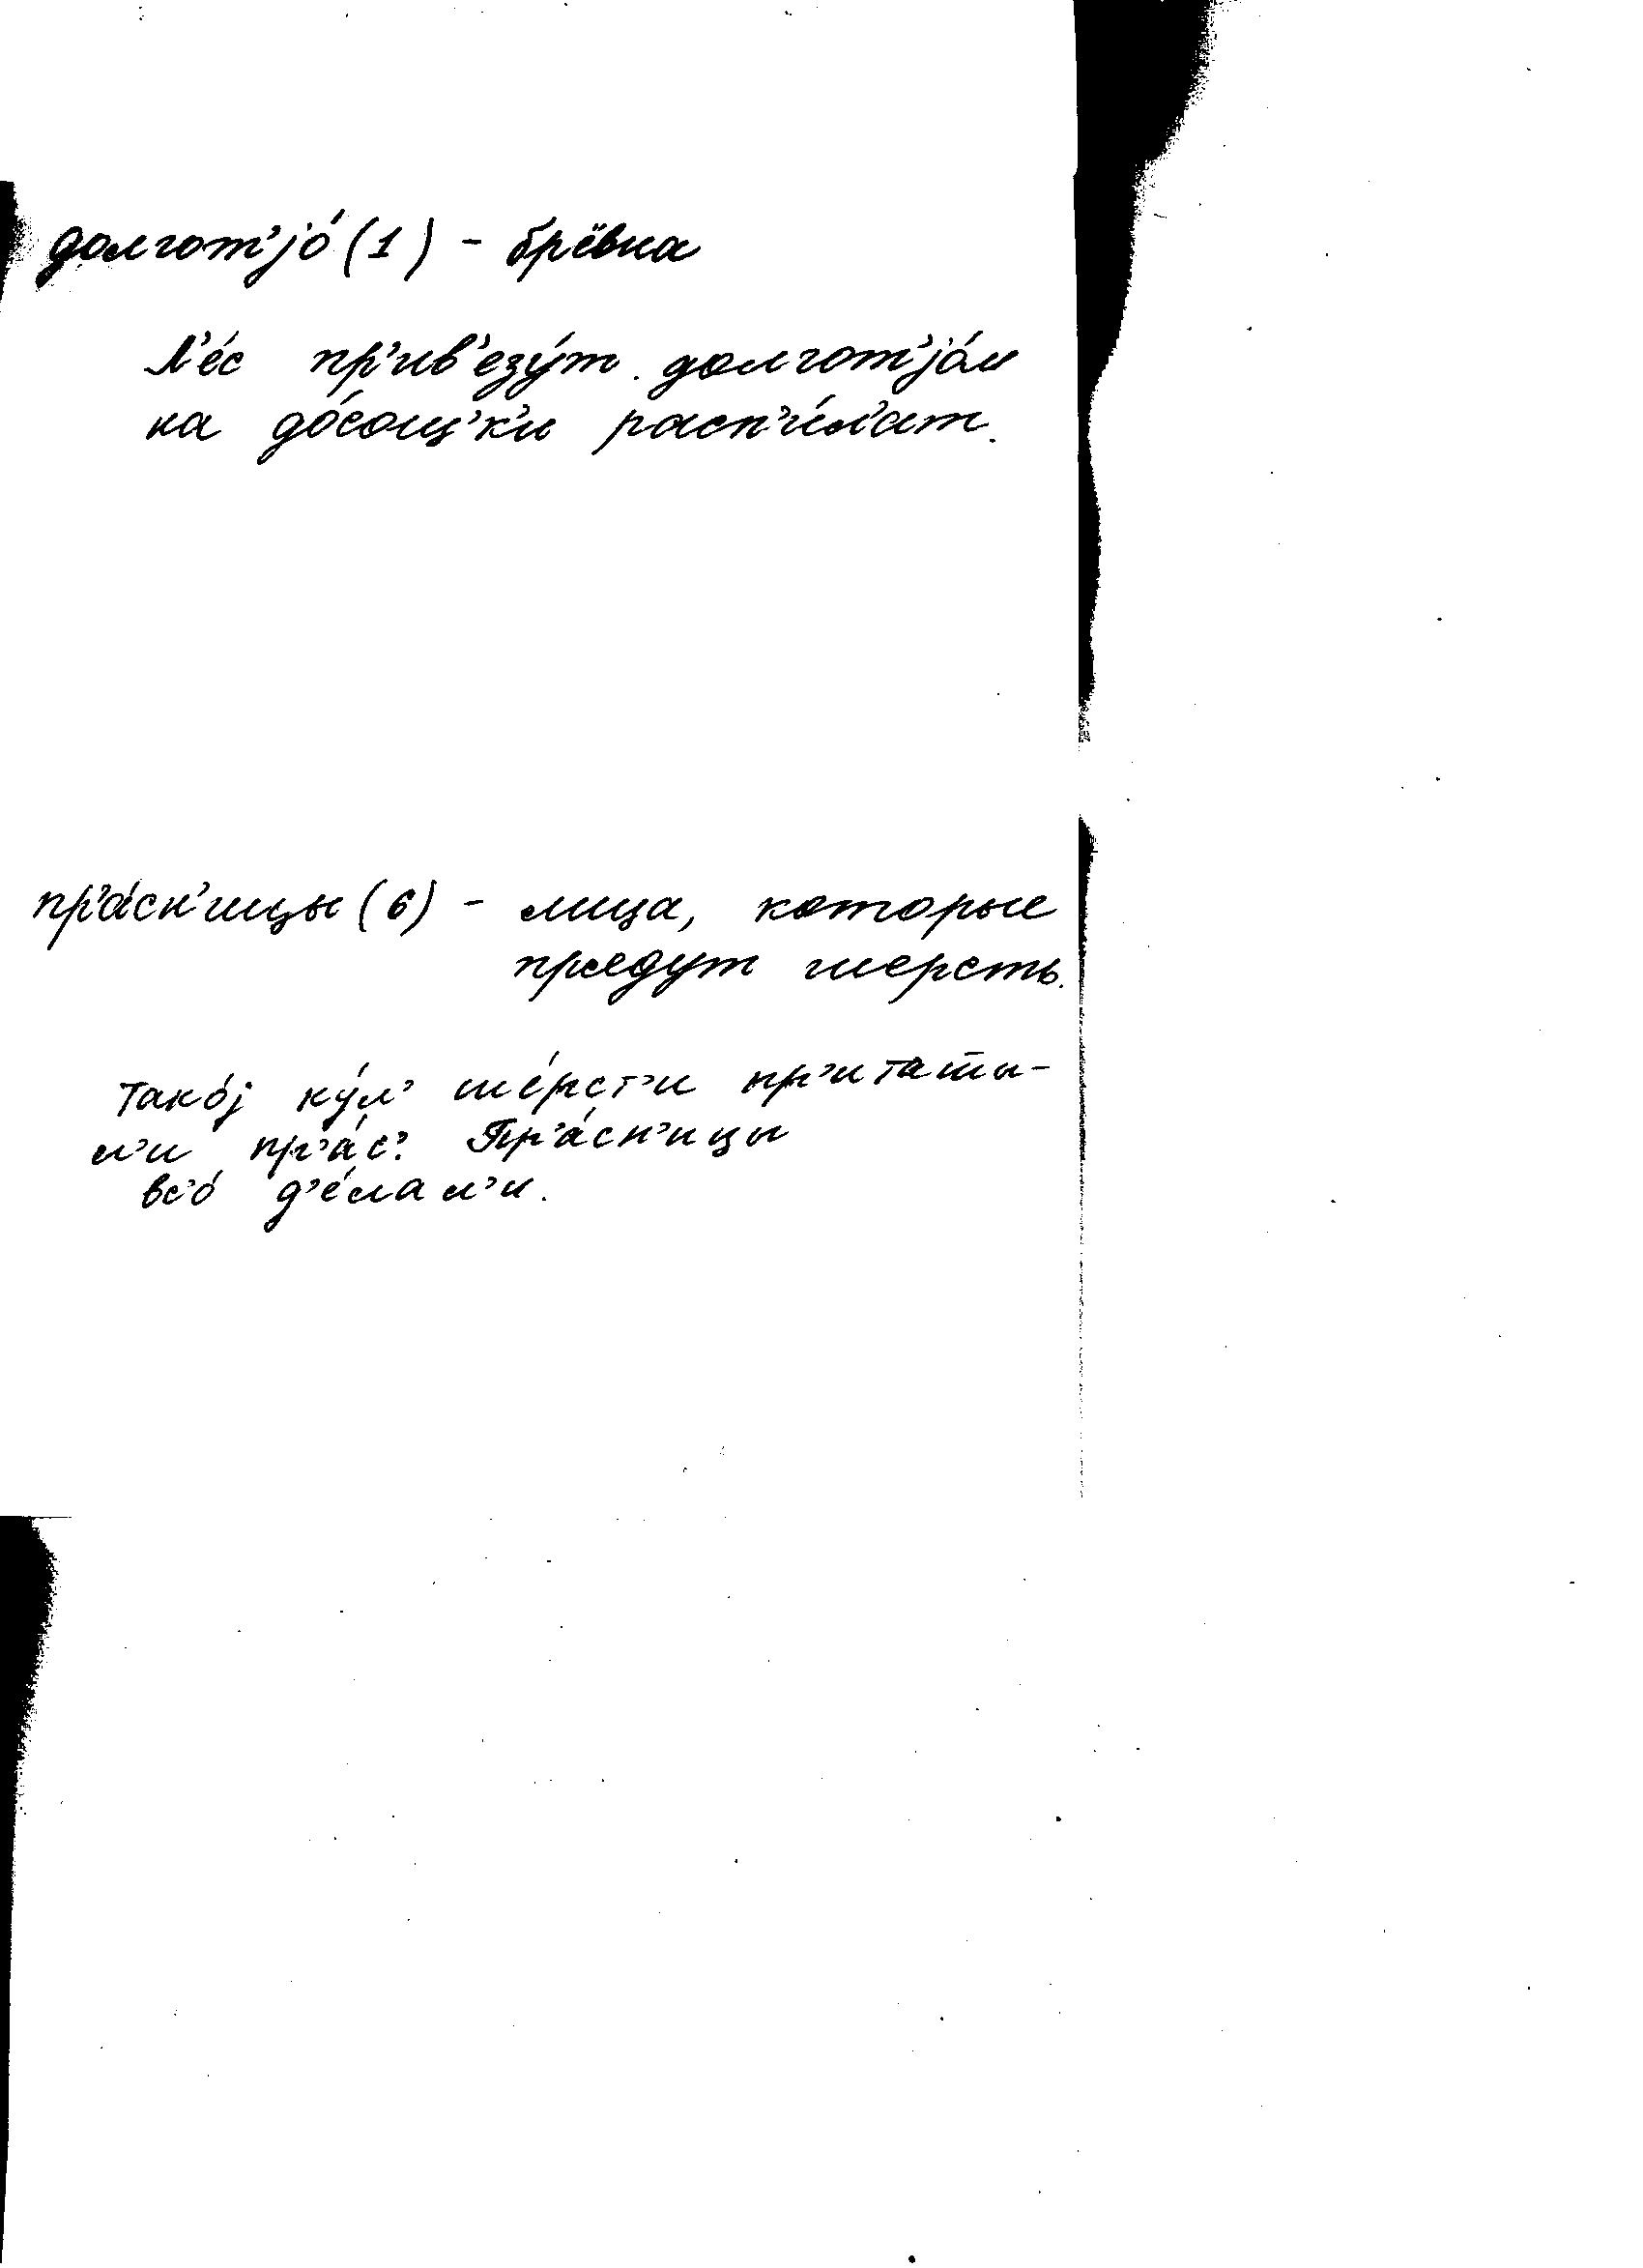 долгот'јо́ (1) - брёвна
Л'е́с пр'ив'езу́т. долгот'јо́м
на до́сощ'к'и расп'и́л'ат.
пр'а́сн'ицы (6) - лица, которые
прядут шерсть.
Тако́ј ку́л' ше́рст'и пр'и
л'и пр'а́с'. Пр'а́сн'ицы
вс'о́ д'е́лал'и.